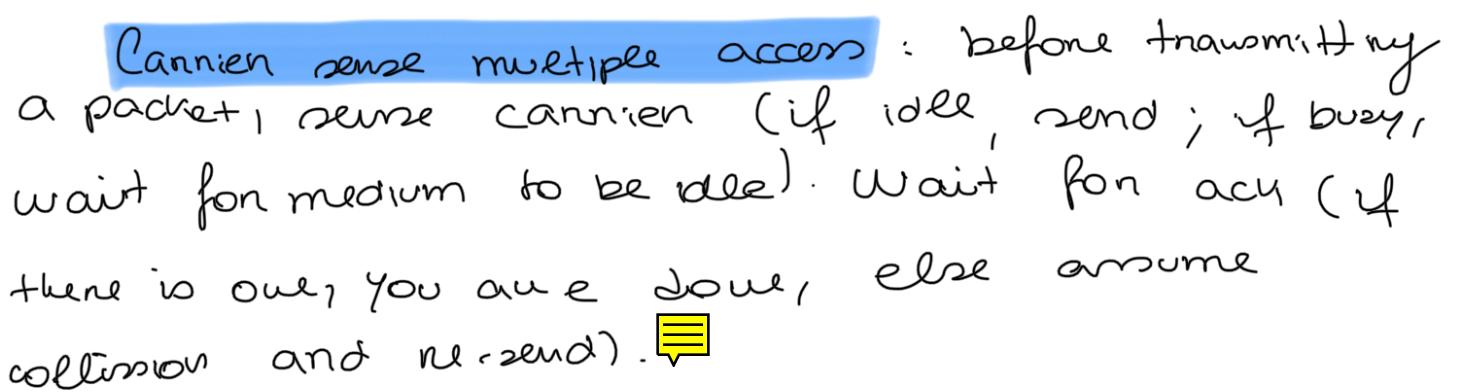 Carrier sense multiple access : before transmitting
a packet, sense carrier (if idle, send ; if busy,
wait for medium to be idle). Wait for ack (if
there is one, you are done, else assume
collission and re-send).